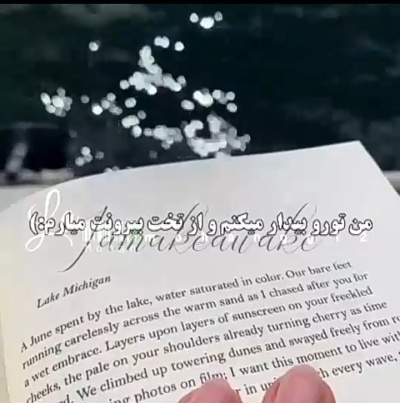 من تورو بیدار میکنم و از تخت بیرونت میارم:)
Lake Michigan
A June spent by the lake, water saturated in color. Our bare feet
running carelessly across the warm sand as I chased after you for
a wet embrace. Layers upon layers of sunscreen on your freckled
cheeks, the pale on your shoulders already turning cherry as time
We climbed up towering dunes and swayed freely from
photos on film; I want this moment to live
in every wave,